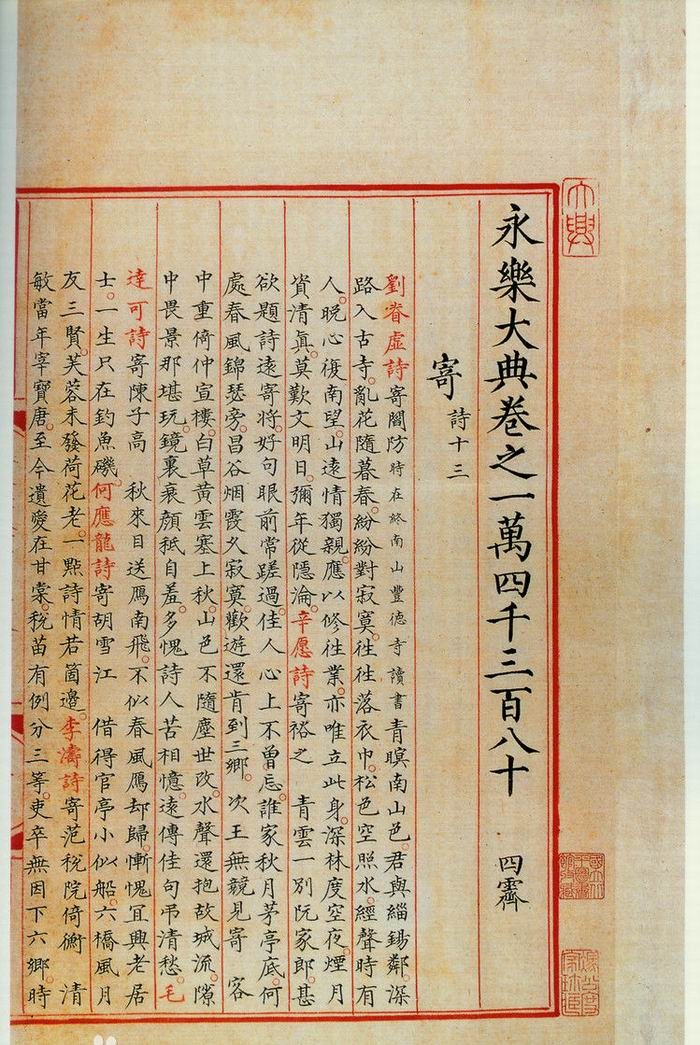 永樂大典卷之一萬四千三百八十 四霽
寄 詩十三
劉眘虛詩寄閻防時在終南山豐德寺讀書青暝南山色。君與緇錫鄰。深
路入古寺。亂花隨暮春。紛紛對寂寞。往往落衣巾。松色空照水。經聲時有
人。晚心復南望。山遠情獨親。應以修往業。亦唯立此身。深林度空夜。煙月
資清真。莫歎文明日。彌年從隱淪。辛愿詩寄裕之 青雲一別阮家郎。甚
欲題詩遠寄將。好句眼前常蹉過。佳人心上不曾忘。誰家秋月茅亭底。何
處春風錦瑟旁。昌谷烟霞久寂寞。歡遊還肯到三鄉。次王無競見寄 客
中重倚仲宣樓。白草黃雲塞上秋。山色不隨塵世改。水聲還抱故城流。隙
中畏景那堪玩。鏡裏衰顏秪自羞。多愧詩人苦相憶。遠傳佳句弔清愁。毛
達可詩寄陳子高 秋來目送雁南飛。不似春風雁却歸。慚愧宜興老居
士。一生只在釣魚磯。何應龍詩寄胡雪江 借得官亭小似船。六橋風月
友三賢。芙蓉未發荷花老。一點詩情若箇邊。李濤詩寄范稅院倚衡 清
敏當年宰寶唐。至今遺愛在甘棠。稅苗有例分三等。吏卒無因下六鄉。時